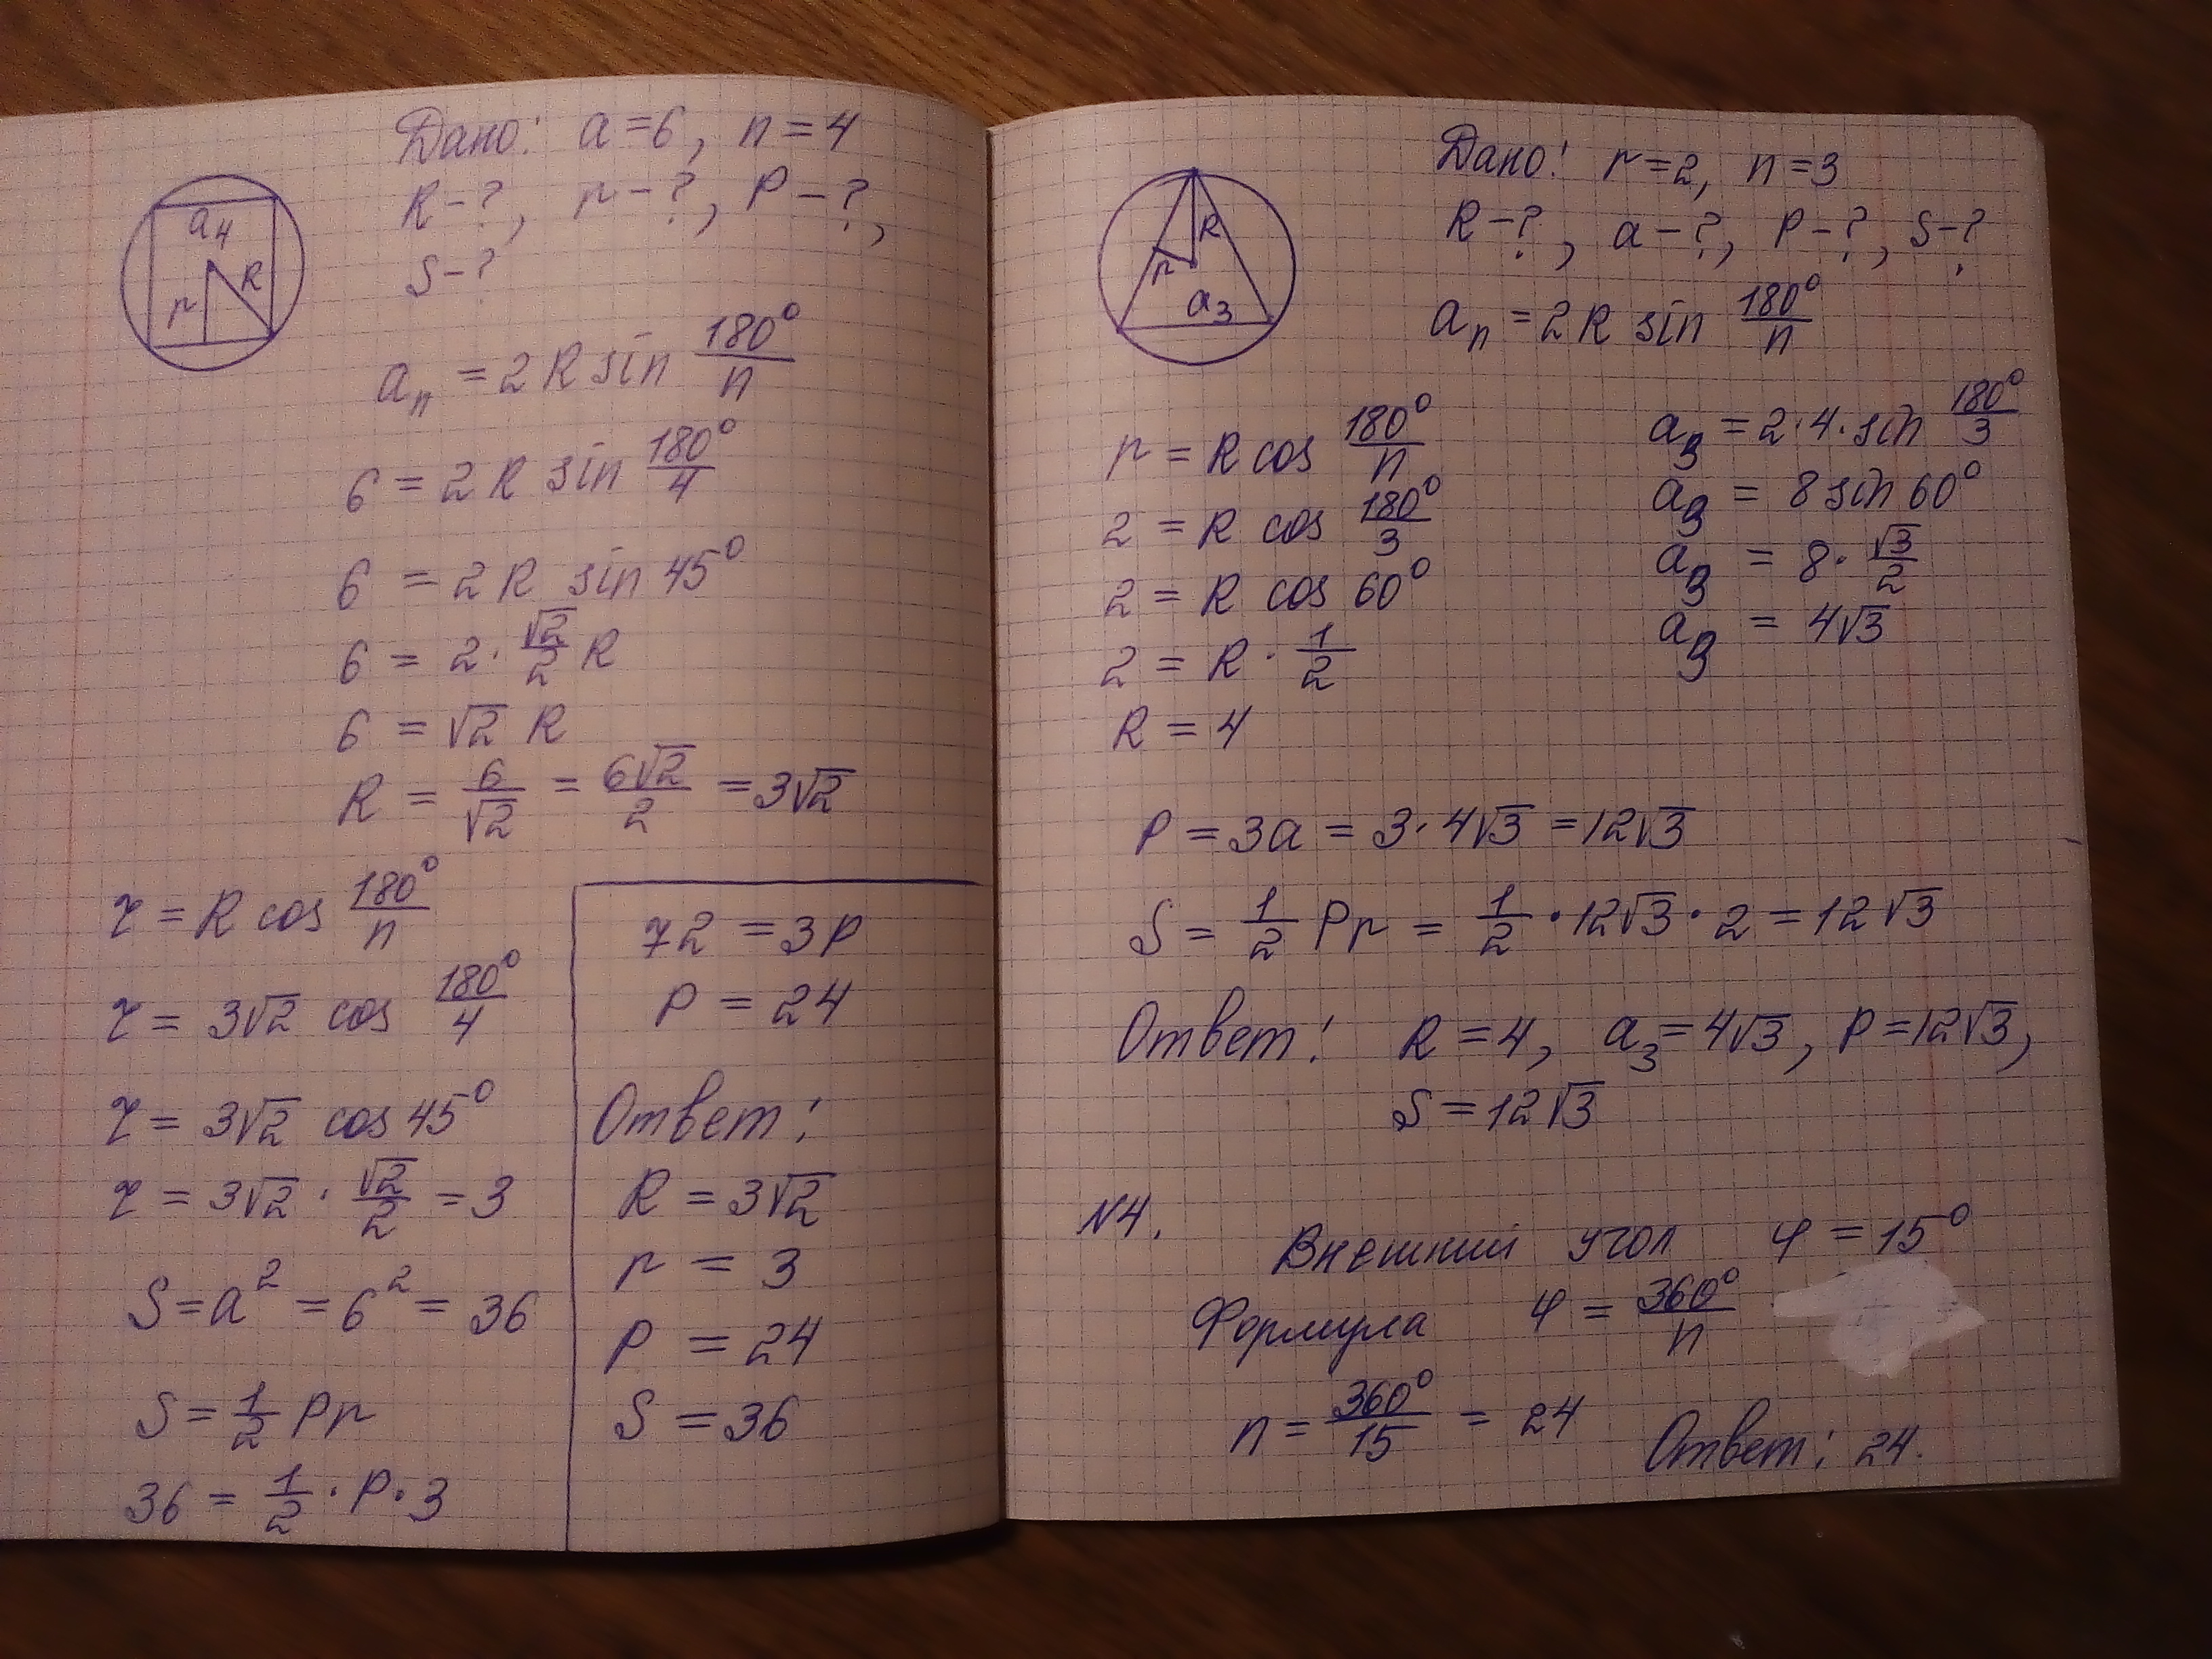 a₄
r R
Дано: a = 6, n = 4
R - ?, r - ?, P - ?,
S - ?
aₙ = 2 R sin 180°/n
6 = 2 R sin 180°/4
6 = 2 R sin 45°
6 = 2 · √2/2 R
6 = √2 R
R = 6/√2 = 6√2/2 = 3√2
r = R cos 180°/n
r = 3√2 cos 180°/4
r = 3√2 cos 45°
r = 3√2 · √2/2 = 3
S = a² = 6² = 36
S = 1/2 Pr
36 = 1/2 · P · 3
72 = 3P
P = 24
Ответ:
R = 3√2
r = 3
P = 24
S = 36
R
r
a₃
Дано: r = 2, n = 3
R - ?, a - ?, P - ?, S - ?
aₙ = 2 R sin 180°/n
r = R cos 180°/n
2 = R cos 180°/3
2 = R cos 60°
2 = R · 1/2
R = 4
a₃ = 2 · 4 · sin 180°/3
a₃ = 8 sin 60°
a₃ = 8 · √3/2
a₃ = 4√3
P = 3a = 3 · 4√3 = 12√3
S = 1/2 Pr = 1/2 · 12√3 · 2 = 12√3
Ответ: R = 4, a₃ = 4√3, P = 12√3,
S = 12√3
N4.
Внешний угол φ = 15°
Формула φ = 360°/n
n = 360°/15 = 24
Ответ: 24.